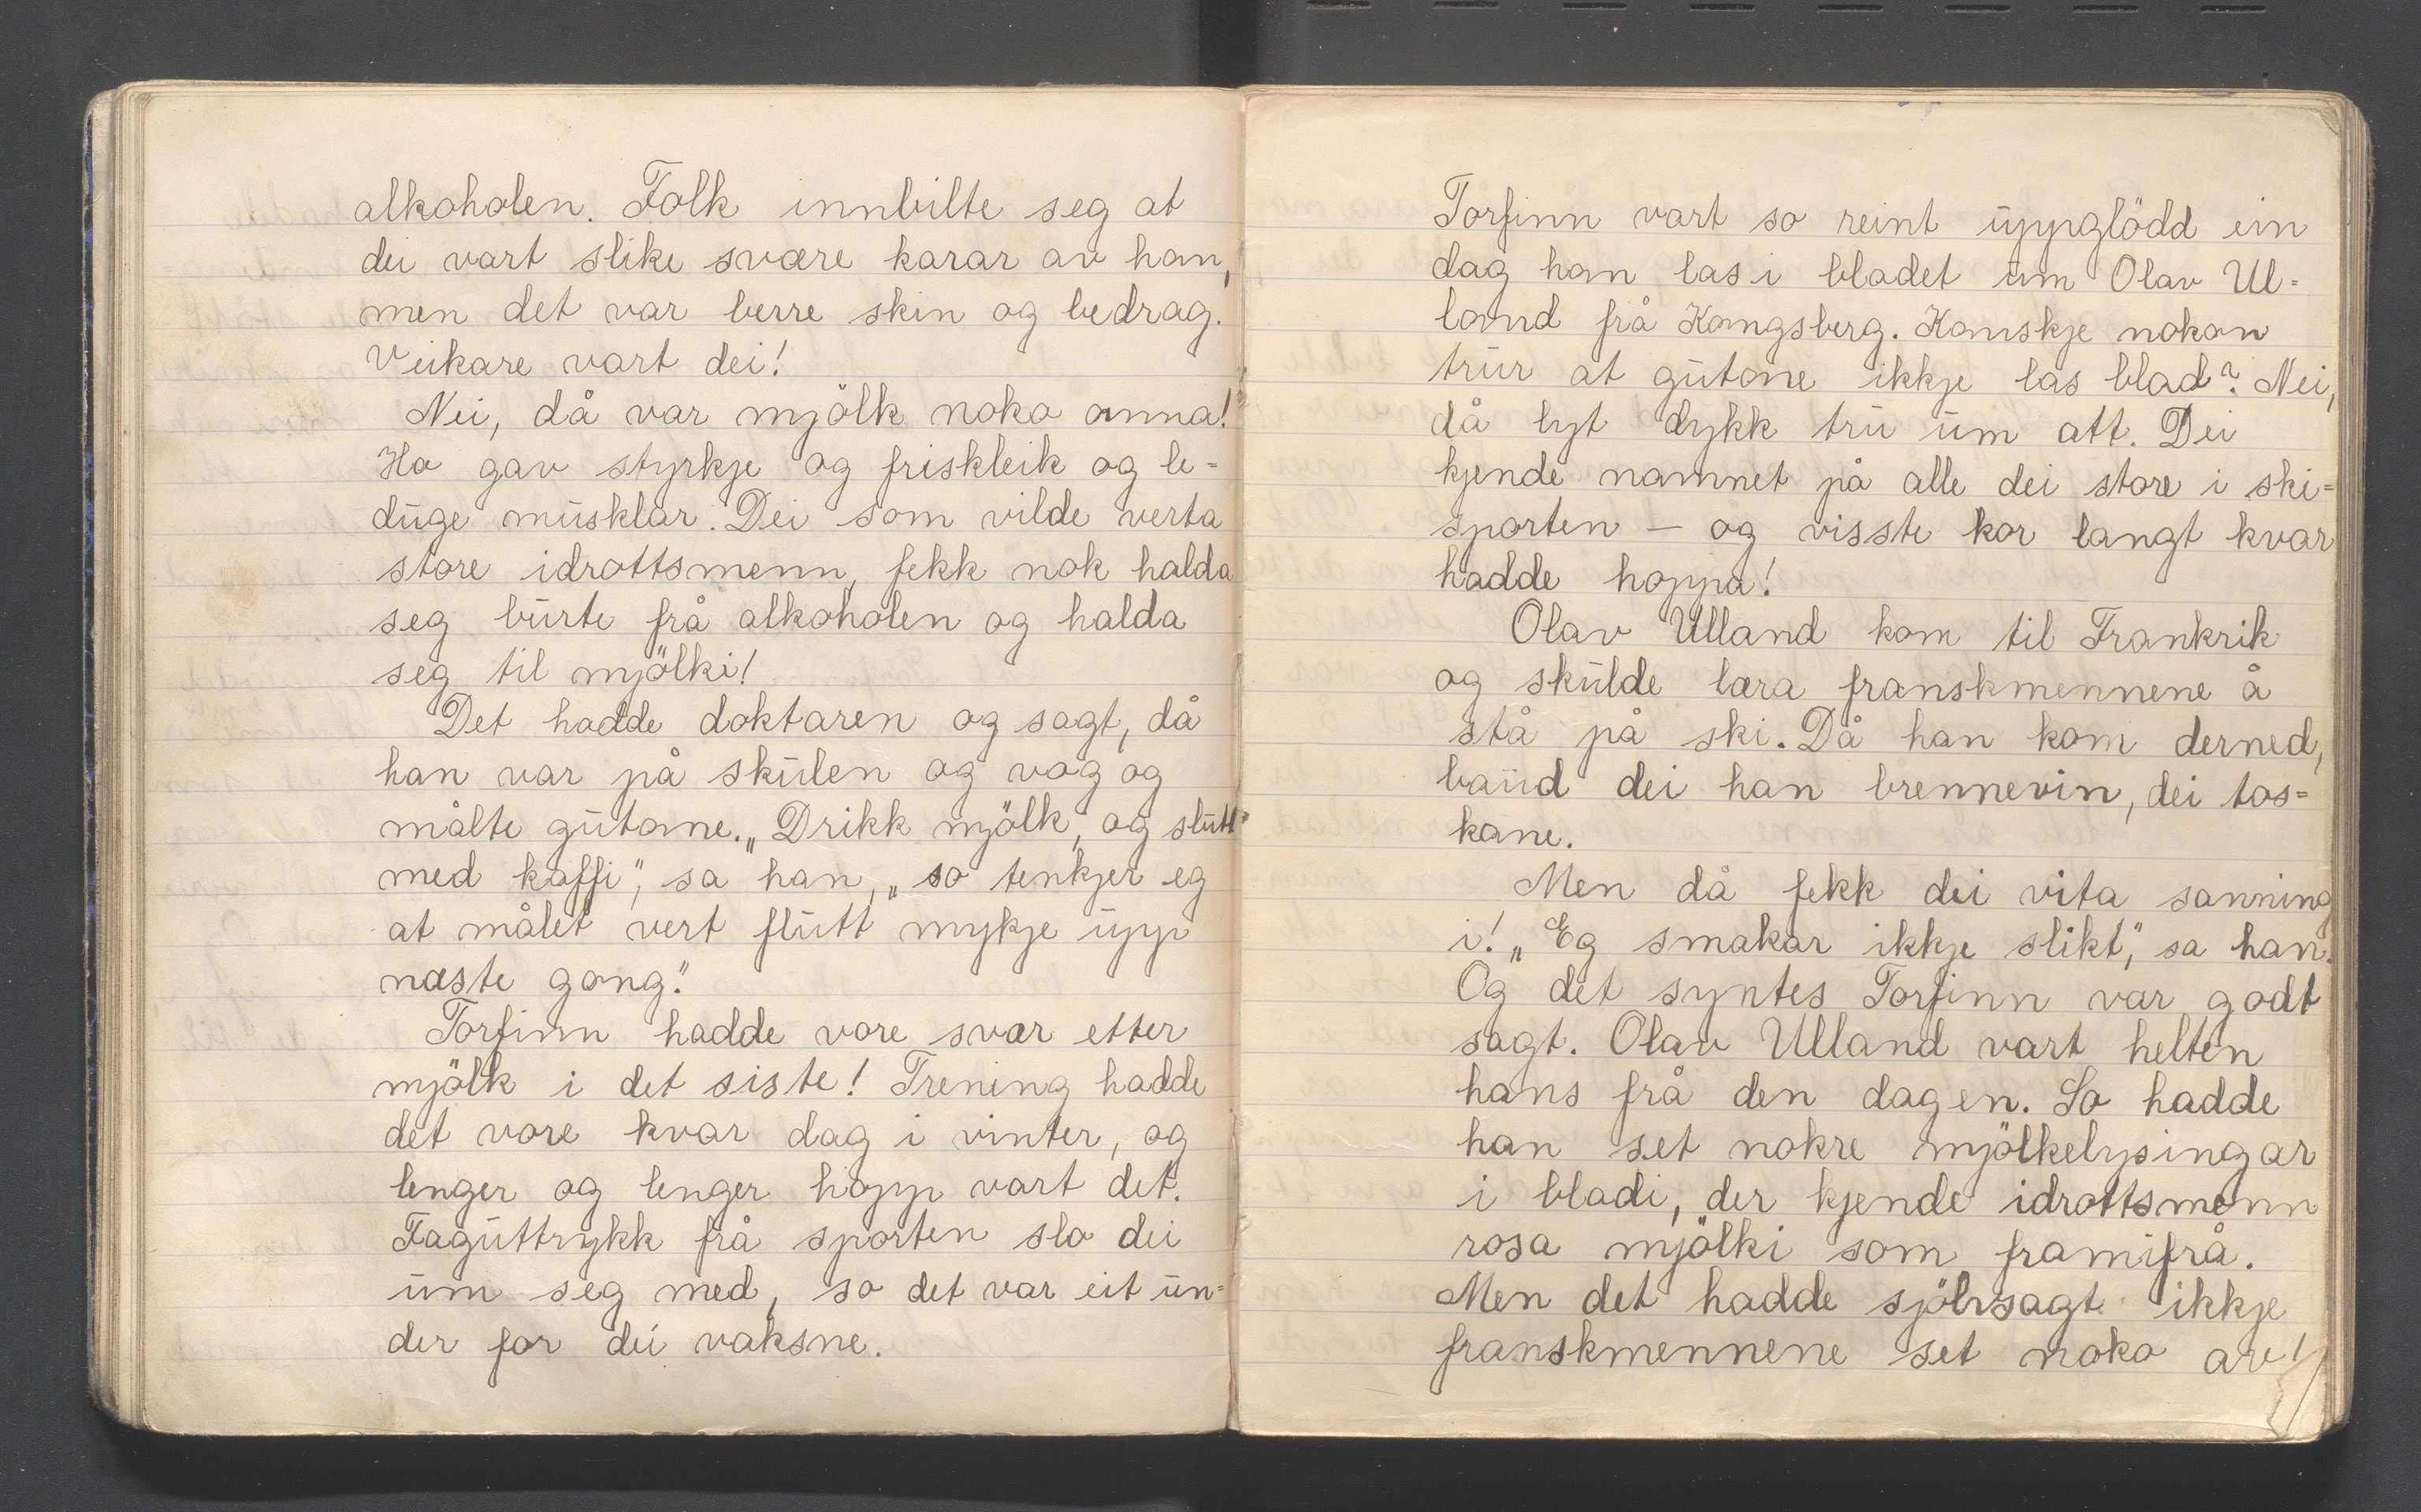 alkoholen. Folk innbilte seg at
dei vart slike svære karar av han,
men det var berre skin og bedrag.
Veikare vart dei!
Nei, då var mjölk noko anna!
Ho gav styrkje og friskleik og le=
duge musklar. Dei som vilde verta
store idrottsmenn, fekk nok halda
seg burte frå alkoholen og halda
seg til mjölki!
Det hadde doktaren og sagt, då
han var på skulen og vog og
målte gutane. „Drikk mjölk, og slutt
med kaffi", sa han, „so tenkjer eg
at målet vert flutt mykje upp
næste gong."
Torfinn hadde vore svær etter
mjölk i det siste! Trening hadde
det vore kvar dag i vinter, og
lenger og lenger hopp vart det.
Faguttrykk frå sporten slo dei
um seg med, so det var eit un=
der for dei vaksne.
Torfinn vart so reint uppglödd ein
dag han las i bladet um Olav Ul=
land frå Kongsberg. Kanskje nokon
trur at gutane ikkje las blad? Nei,
då lyt dykk tru um att. Dei
kjende namnet på alle dei store i ski=
sporten – og visste kor langt kvar
hadde hoppa!
Olav Ulland kom til Frankrik
og skulde læra franskmennene å
stå på ski. Då han kom derned,
baud dei han brennevin, dei tos=
kane.
Men då fekk dei vita sanning
i! „Eg smakar ikkje slikt", sa han.
Og det syntes Torfinn var godt
sagt. Olav Ulland vart helten
hans frå den dagen. So hadde
han set nokre mjölkelysingar
i bladi, der kjende idrottsmenn
rosa mjölki som framifrå.
Men det hadde sjölvsagt ikkje
franskmennene set noko av!